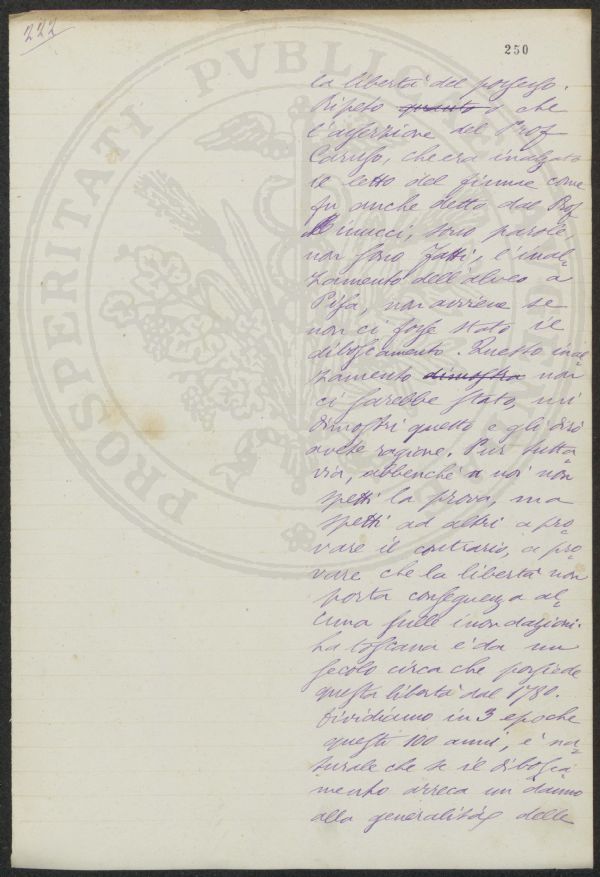 222
250
la libertà del possesso.
Ripeto quanto, che
l'asserzione del Prof
Caruso, che era inalzato
il letto del fiume come
fu anche detto dal Prof
Minucci, sono parole
non sono fatti, l'inal-
zamento dell'alveo a
Pisa, non avviene se
non ci fosse stato il
diboscamento. Questo inal
zamento dimostra non
ci sarebbe stato, mi
dimostri questo e gli dirò
avete ragione. Pur tutta
via, abbenché a noi non
spetti la prova, ma
spetti ad altri a pro-
vare il contrario, a pro-
vare che la libertà non
porta conseguenza al-
cuna sulle inondazioni.
La toscana è da un
secolo circa che possiede
questa libertà dal 1780.
Dividiamo in 3 epoche
questi 100 anni, è na-
turale che se il disbosca
mento arreca un danno
alla generalità delle
PROSPERITATI PVBLICAE AVGENDAE